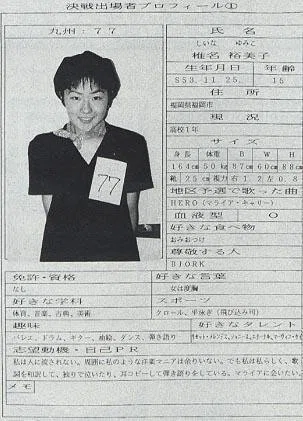 決戦出場者プロフィール①
九州：77
氏 名
しいな ゆみこ
椎名 裕美子
生年月日 年齢
S53.11.25. 15
住 所
福岡県福岡市
現 況
高校1年
サイズ
身長 体重 B W H
164cm 50kg 87cm 60cm 88cm
靴 25cm 視力 右1.2 左0.8
地区予選で歌った曲
HERO(マライア・キャリー)
血液型 O
好きな食べ物
おみおつけ
尊敬する人
BJORK
77
免許・資格 好きな言葉
なし 女は度胸
好きな学科 スポーツ
体育、音楽、古典、美術 クロール、平泳ぎ(飛び込み可)
趣味 好きなタレント
バレエ、ドラム、ギター、油絵、ダンス、弾き語り
志望動機・自己PR
私は人に流されない。周囲に私のような洋楽マニアは余りいない。でも私は私らしく、歌
詞を和訳して、独りで泣いたり、耳コピーして弾き語りをしている。マライアに会いたい。
メモ